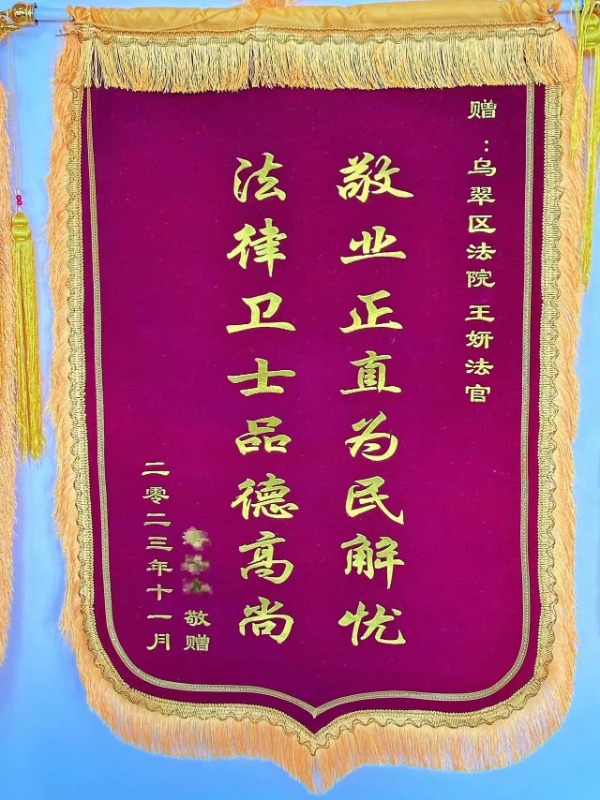 赠：乌翠区法院 王妍法官
敬业正直为民解忧
法律卫士品德高尚
敬赠
二零二三年十一月